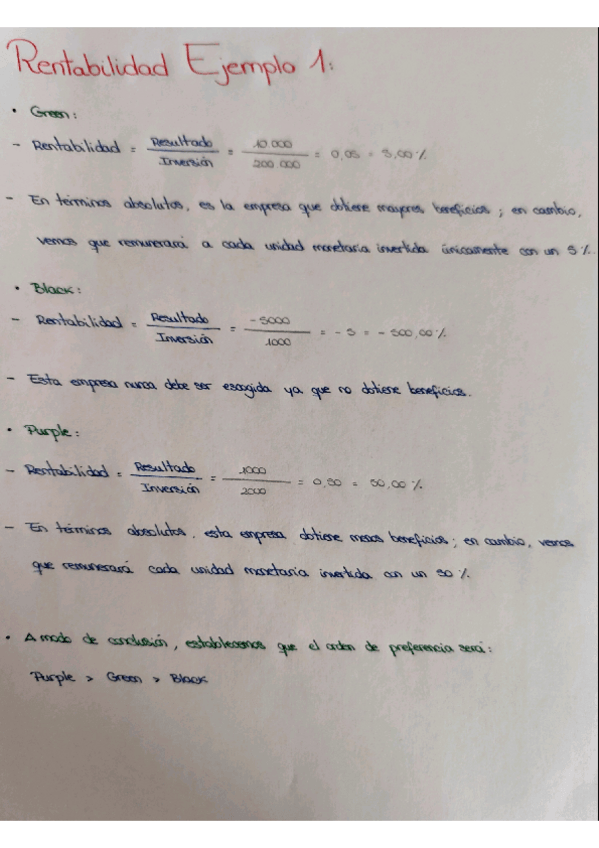 Rentabilidad Ejemplo 1:
• Green:
- Rentabilidad = Resultado / Inversión = 10.000 / 200.000 = 0,05 = 5,00 %
- En términos absolutos, es la empresa que obtiene mayores beneficios; en cambio,
vemos que remunerará a cada unidad monetaria invertida únicamente con un 5 %.
• Black:
- Rentabilidad = Resultado / Inversión = -5000 / 1000 = -5 = -500,00 %
- Esta empresa nunca debe ser escogida ya que no obtiene beneficios.
• Purple:
- Rentabilidad = Resultado / Inversión = 1000 / 2000 = 0,50 = 50,00 %
- En términos absolutos, esta empresa obtiene menos beneficios; en cambio, vemos
que remunerará cada unidad monetaria invertida con un 50 %.
• A modo de conclusión, establecemos que el orden de preferencia será:
Purple > Green > Black